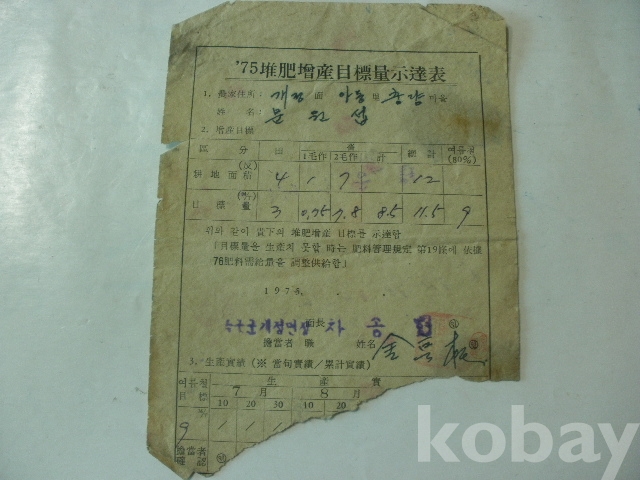 '75堆肥增産目標量示達表
1. 農家住所: 개정 面 아동 里 마을
姓 名: 문
2. 增産目標
區 分 田 畓 總計 여름철(80%)
1毛作 2毛作 計
耕地面積 (反) 4 1 7 12
目標量 (%) 3 0.75 7.8 8.5 11.5 9
위와 같이 貴下의 堆肥增産 目標를 示達함
「目標量을 生産치 못할 時는 肥料管理規定 第19條에 依據
76肥料需給量을 調整供給함」
1975. . .
개정면장 面長 차 종
擔當者 職 姓名 金
3. 生産實績 (※ 當旬實績/累計實績)
여름철目標 生 産 實
7 月 8 月
10 20 30 10 20
9 1 1 1
擔當者確認
kobay